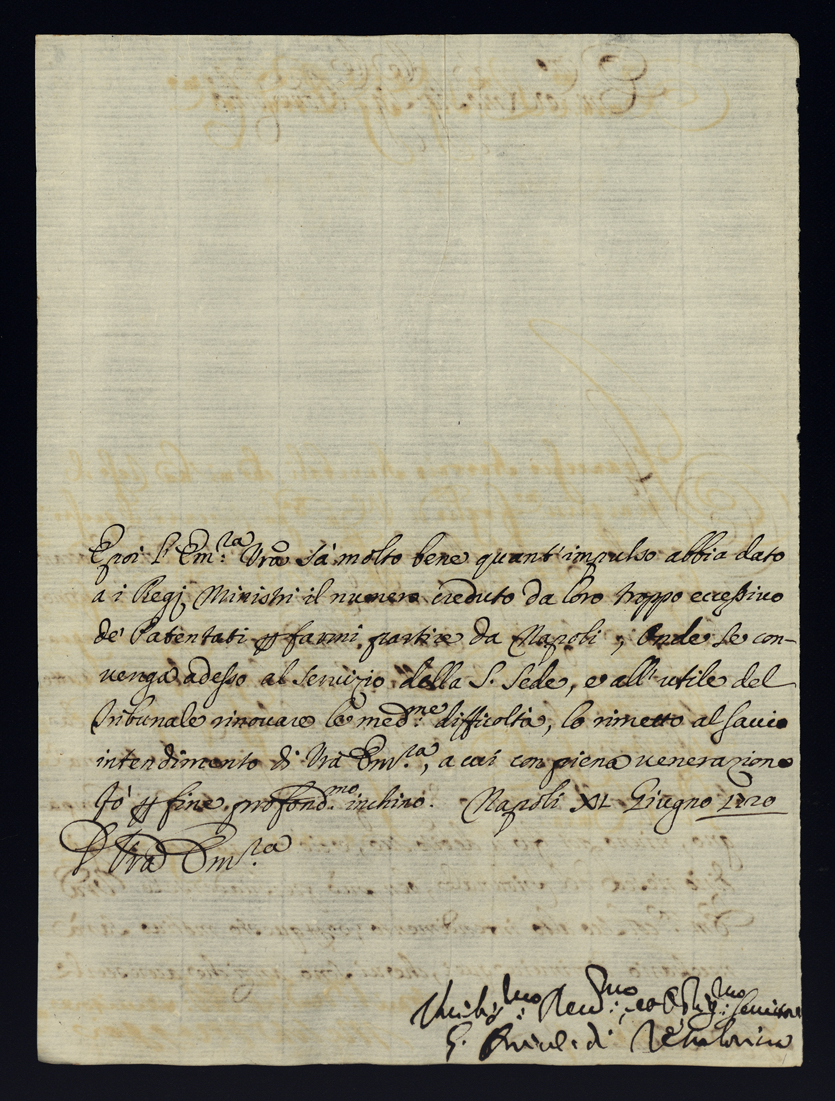 E poi l'Em:za Vra sà molto bene quant'impulso abbia dato
a i Regj Ministri il numero creduto da loro troppo eccessivo
de' Patentati p farmi partire da Napoli; Onde se con-
venga adesso al servizio della S. Sede, e all'utile del
Tribunale rinovare le med:me difficoltà, lo rimetto al savio
intendimento di Vra Em:za, a cui con piena venerazione
fò p fine profond:mo inchino. Napoli XI Giugno 1720
D Vra Em:za
Umilis:mo Dev:mo, ed Oblig:mo Servitore
di